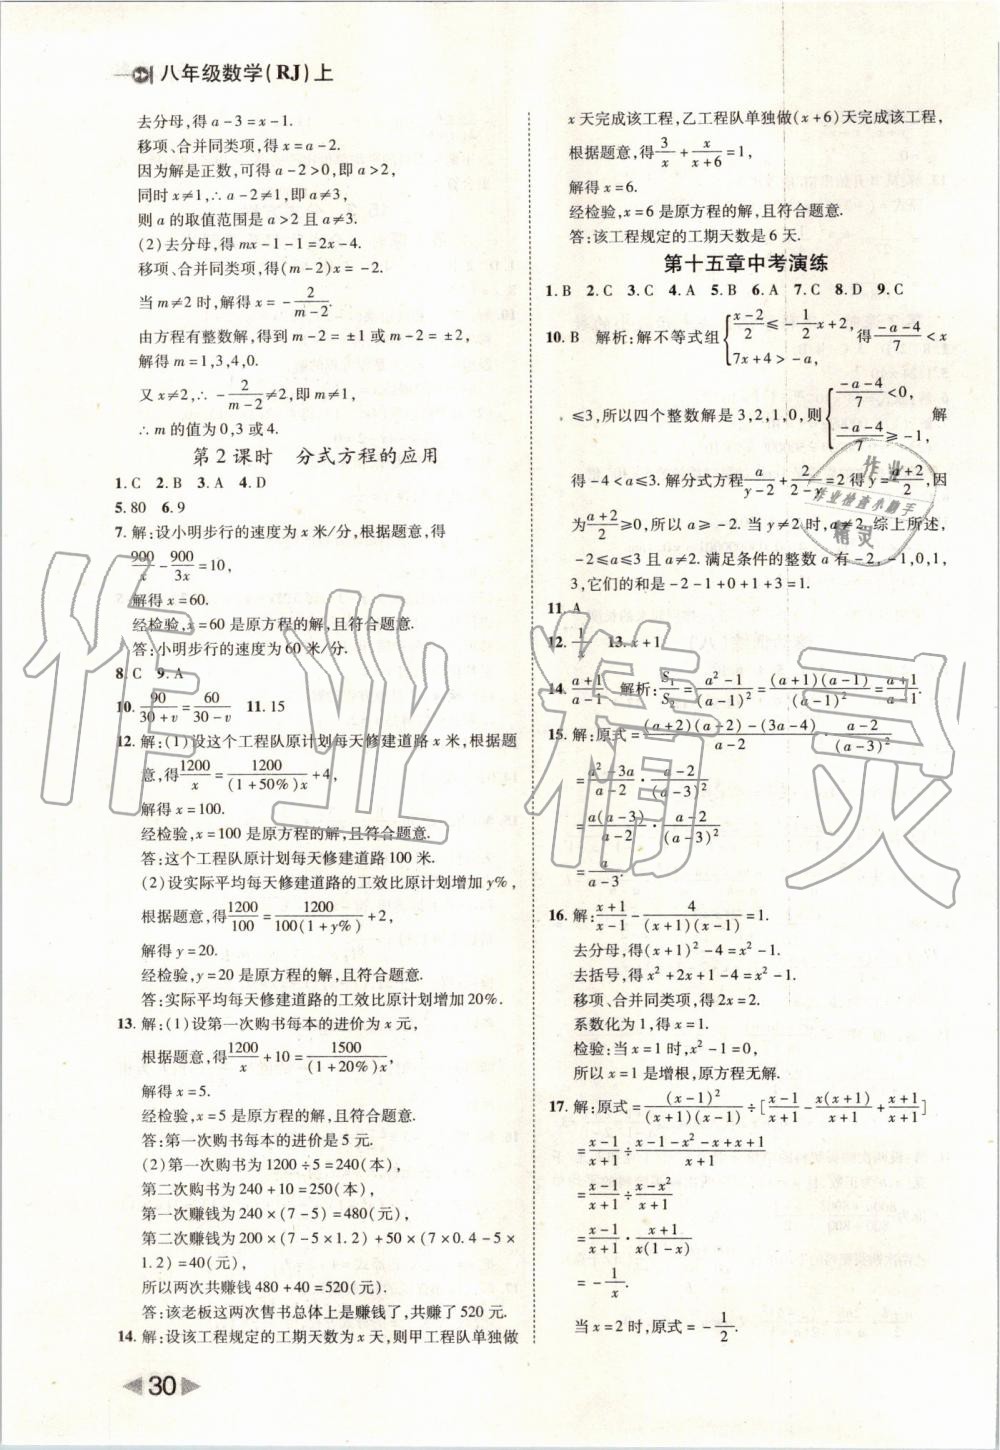 八年级数学(RJ)上
去分母,得 a-3=x-1.
移项、合并同类项,得 x=a-2.
因为解是正数,可得 a-2>0,即 a>2,
同时 x≠1,∴a-2≠1,即 a≠3,
则 a 的取值范围是 a>2 且 a≠3.
(2)去分母,得 mx-1-1=2x-4.
移项、合并同类项,得(m-2)x=-2.
当 m≠2 时,解得 x=-2/(m-2).
由方程有整数解,得到 m-2=±1 或 m-2=±2,
解得 m=1,3,4,0.
又 x≠2,∴-2/(m-2)≠2,即 m≠1,
∴m 的值为 0,3 或 4.
第 2 课时 分式方程的应用
1. C 2. B 3. A 4. D
5. 80 6. 9
7. 解:设小明步行的速度为 x 米/分,根据题意,得
900/x-900/3x=10,
解得 x=60.
经检验,x=60 是原方程的解,且符合题意.
答:小明步行的速度为 60 米/分.
8. C 9. A
10. 90/(30+v)=60/(30-v) 11. 15
12. 解:(1)设这个工程队原计划每天修建道路 x 米,根据题
意,得1200/x=1200/(1+50%)x+4,
解得 x=100.
经检验,x=100 是原方程的解,且符合题意.
答:这个工程队原计划每天修建道路 100 米.
(2)设实际平均每天修建道路的工效比原计划增加 y%,
根据题意,得1200/100=1200/100(1+y%)+2,
解得 y=20.
经检验,y=20 是原方程的解,且符合题意.
答:实际平均每天修建道路的工效比原计划增加 20%.
13. 解:(1)设第一次购书每本的进价为 x 元,
根据题意,得1200/x+10=1500/(1+20%)x,
解得 x=5.
经检验,x=5 是原方程的解,且符合题意.
答:第一次购书每本的进价是 5 元.
(2)第一次购书为 1200÷5=240(本),
第二次购书为 240+10=250(本),
第一次赚钱为 240×(7-5)=480(元),
第二次赚钱为 200×(7-5×1.2)+50×(7×0.4-5×
1.2)=40(元),
所以两次共赚钱 480+40=520(元),
答:该老板这两次售书总体上是赚钱了,共赚了 520 元.
14. 解:设该工程规定的工期天数为 x 天,则甲工程队单独做
30
x 天完成该工程,乙工程队单独做(x+6)天完成该工程,
根据题意,得3/x+x/(x+6)=1,
解得 x=6.
经检验,x=6 是原方程的解,且符合题意.
答:该工程规定的工期天数是 6 天.
第十五章中考演练
1. B 2. C 3. C 4. A 5. B 6. A 7. C 8. D 9. C
10. B 解析:解不等式组{(x-2)/2≤-1/2x+2, 7x+4>-a, 得(-a-4)/7<x
≤3,所以四个整数解是 3,2,1,0,则{(-a-4)/7<0, (-a-4)/7≥-1, 解
得-4<a≤3. 解分式方程a/(y-2)+2/(2-y)=2 得 y=(a+2)/2,因
为(a+2)/2≥0,所以 a≥-2. 当 y=2 时,a≠2. 综上所述,
-2≤a≤3 且 a≠2. 满足条件的整数 a 有-2,-1,0,1,
3,它们的和是-2-1+0+1+3=1.
11. A
12. 1/x 13. x+1
14. (a+1)/(a-1) 解析:S₁/S₂=(a²-1)/(a-1)²=(a+1)(a-1)/(a-1)²=(a+1)/(a-1).
15. 解:原式=[(a+2)(a-2)-(3a-4)]/(a-2)·(a-2)/(a-3)²
=(a²-3a)/(a-2)·(a-2)/(a-3)²
=a(a-3)/(a-2)·(a-2)/(a-3)²
=a/(a-3).
16. 解:(x+1)/(x-1)-4/(x+1)(x-1)=1.
去分母,得(x+1)²-4=x²-1.
去括号,得 x²+2x+1-4=x²-1.
移项、合并同类项,得 2x=2.
系数化为 1,得 x=1.
检验:当 x=1 时,x²-1=0,
所以 x=1 是增根,原方程无解.
17. 解:原式=(x-1)²/(x+1)(x-1)÷[(x-1)/(x+1)-x(x+1)/(x+1)+(x+1)/(x+1)]
=(x-1)/(x+1)÷(x-1-x²-x+x+1)/(x+1)
=(x-1)/(x+1)÷(x-x²)/(x+1)
=(x-1)/(x+1)·(x+1)/x(1-x)
=-1/x.
当 x=2 时,原式=-1/2.
作业精灵
作业
作业检查小助手
精灵